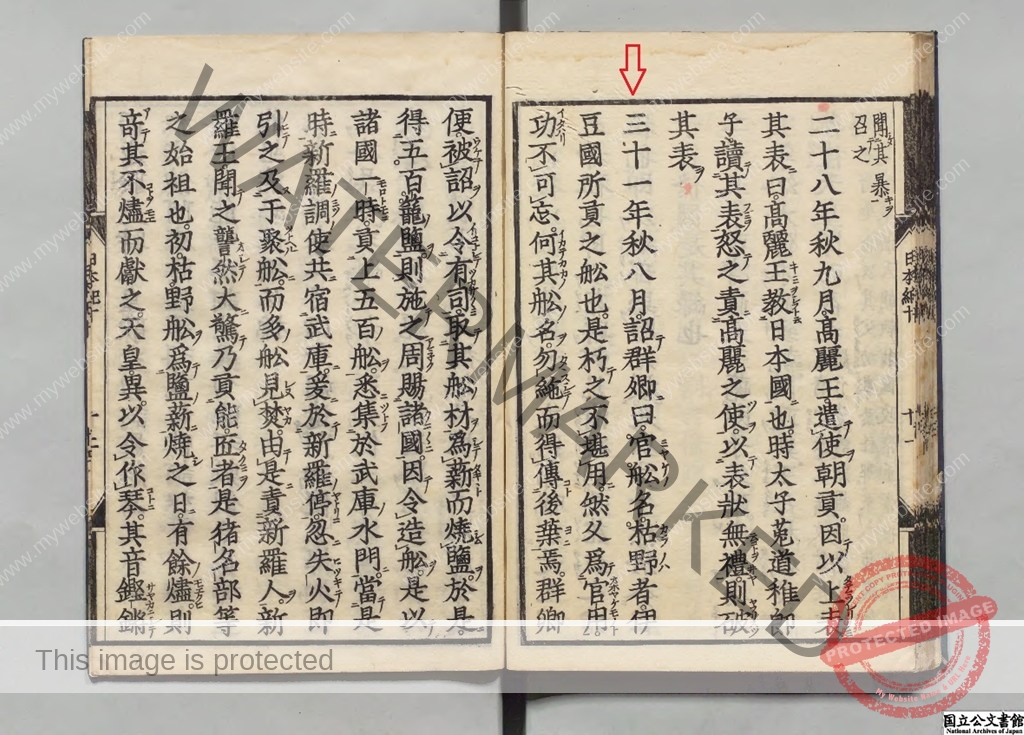 聞其暴
召之
二十八年秋九月。髙麗王遣使朝貢。因以上表
其表曰。髙麗王教日本國也。時太子菟道稚郎
子讀其表怒之責髙麗之使。以表狀無禮。則破
其表
三十一年秋八月。詔群卿曰。官舩名枯野者。伊
豆國所貢之舩也。是朽之不堪用。然久爲官用
功不可忘。何其舩名勿絁而得傳後葉焉。群卿
便被詔以令有司。取其舩材爲薪而燒鹽。於是。
得五百籠鹽。則施之周賜諸國。因令造舩。是以
諸國一時貢上五百舩。悉集於武庫水門。當是
時新羅調使共宿武庫。爰於新羅停忽失火。即
引之及于聚舩。而多舩見焚。由是責新羅人。新
羅王聞之讋然大驚乃貢能匠者。是猪名部等
之始祖也。初枯野舩爲鹽薪燒之日。有餘燼。則
竒其不燼而獻之。天皇異以令作琴。其音鏗鏘
日本紀十
十一
WATERMARKED
This image is protected
PROTECTED IMAGE
国立公文書館
National Archives of Japan